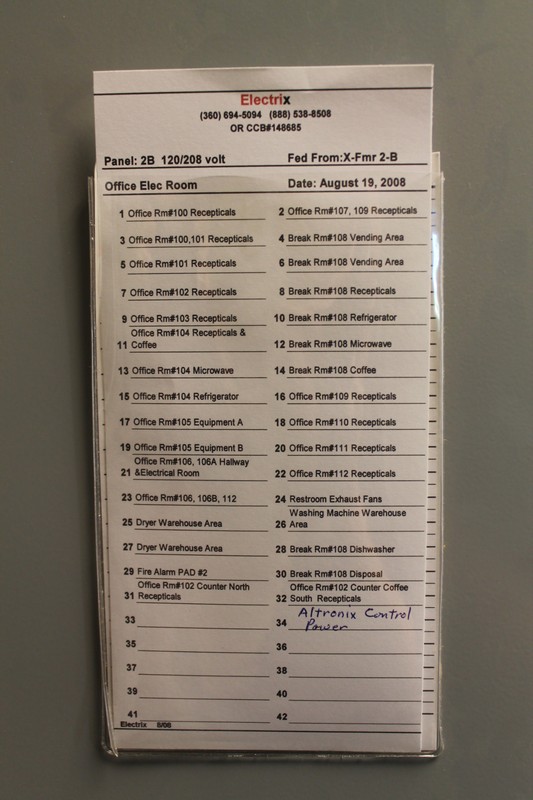 Electrix
(360) 694-5094 (888) 538-8508
OR CCB#148685
Panel: 2B 120/208 volt Fed From:X-Fmr 2-B
Office Elec Room Date: August 19, 2008
1 Office Rm#100 Recepticals 2 Office Rm#107, 109 Recepticals
3 Office Rm#100,101 Recepticals 4 Break Rm#108 Vending Area
5 Office Rm#101 Recepticals 6 Break Rm#108 Vending Area
7 Office Rm#102 Recepticals 8 Break Rm#108 Recepticals
9 Office Rm#103 Recepticals 10 Break Rm#108 Refrigerator
Office Rm#104 Recepticals &
11 Coffee 12 Break Rm#108 Microwave
13 Office Rm#104 Microwave 14 Break Rm#108 Coffee
15 Office Rm#104 Refrigerator 16 Office Rm#109 Recepticals
17 Office Rm#105 Equipment A 18 Office Rm#110 Recepticals
19 Office Rm#105 Equipment B 20 Office Rm#111 Recepticals
Office Rm#106, 106A Hallway
21 &Electrical Room 22 Office Rm#112 Recepticals
23 Office Rm#106, 106B, 112 24 Restroom Exhaust Fans
Washing Machine Warehouse
25 Dryer Warehouse Area 26 Area
27 Dryer Warehouse Area 28 Break Rm#108 Dishwasher
29 Fire Alarm PAD #2 30 Break Rm#108 Disposal
Office Rm#102 Counter North Office Rm#102 Counter Coffee
31 Recepticals 32 South Recepticals
Altronix Control
33 34 Power
35 36
37 38
39 40
41 42
Electrix 8/08